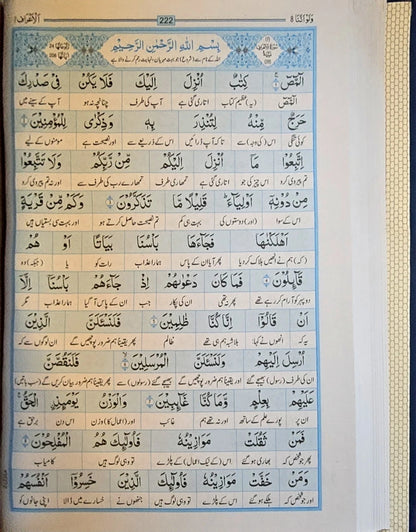 الاعراف ٧ 222 ولو اننا ٨
بِسْمِ اللهِ الرَّحْمٰنِ الرَّحِيْمِ
الٓمّٓصٓ ۚ كِتٰبٌ اُنْزِلَ اِلَيْكَ فَلَا يَكُنْ فِيْ صَدْرِكَ
الٓمّٓصٓ (یہ) عظیم کتاب اتاری گئی ہے آپ کی طرف چنانچہ نہ ہو آپ کے سینے میں
حَرَجٌ مِّنْهُ لِتُنْذِرَ بِهٖ وَذِكْرٰى لِلْمُؤْمِنِيْنَ
کوئی تنگی اس (کی وجہ) سے تاکہ آپ ڈرائیں اس کے ذریعے سے اور نصیحت ہے مومنوں کے لیے
اِتَّبِعُوْا مَآ اُنْزِلَ اِلَيْكُمْ مِّنْ رَّبِّكُمْ وَلَا تَتَّبِعُوْا
تم پیروی کرو اس چیز کی جو اتاری گئی ہے تمہاری طرف تمہارے رب کی طرف سے اور نہ تم پیروی کرو
مِنْ دُوْنِهٖٓ اَوْلِيَآءَ ۭ قَلِيْلًا مَّا تَذَكَّرُوْنَ وَكَمْ مِّنْ قَرْيَةٍ
اس کے سوا (اور) دوستوں کی بہت ہی کم تم نصیحت حاصل کرتے ہو اور بہت سی بستیاں ہیں
اَهْلَكْنٰهَا فَجَآءَهَا بَاْسُنَا بَيَاتًا اَوْ هُمْ
(کہ) ہم نے انھیں ہلاک کر دیا پھر آیا ان کے پاس ہمارا عذاب رات کو یا (جبکہ) وہ
قَآىِٕلُوْنَ فَمَا كَانَ دَعْوٰىهُمْ اِذْ جَآءَهُمْ بَاْسُنَآ اِلَّآ
دوپہر کو آرام کر رہے تھے پھر نہ تھی ان کی پکار جب ان کے پاس آیا ہمارا عذاب مگر
اَنْ قَالُوْٓا اِنَّا كُنَّا ظٰلِمِيْنَ فَلَنَسْـَٔلَنَّ الَّذِيْنَ
یہ کہ انھوں نے کہا بلاشبہ ہم ہی تھے ظالم پھر یقیناً ہم ضرور پوچھیں گے ان لوگوں سے کہ
اُرْسِلَ اِلَيْهِمْ وَلَنَسْـَٔلَنَّ الْمُرْسَلِيْنَ فَلَنَقُصَّنَّ
ان کی طرف (رسول) بھیجے گئے اور یقیناً ہم ضرور پوچھیں گے بھیجے گئے (رسولوں) سے پھر یقیناً ہم ضرور بیان کریں گے (سب باتیں)
عَلَيْهِمْ بِعِلْمٍ وَّمَا كُنَّا غَآىِٕبِيْنَ وَالْوَزْنُ يَوْمَىِٕذِ ۨالْحَقُّ ۚ
ان پر پورے علم کے ساتھ اور نہ تھے ہم غائب اور (اعمال کا) وزن اس دن برحق ہے
فَمَنْ ثَقُلَتْ مَوَازِيْنُهٗ فَاُولٰٓىِٕكَ هُمُ الْمُفْلِحُوْنَ
پھر جو شخص کہ بھاری ہو گئے اس کے (نیک اعمال) کے پلڑے تو وہی لوگ ہیں کامیاب
وَمَنْ خَفَّتْ مَوَازِيْنُهٗ فَاُولٰٓىِٕكَ الَّذِيْنَ خَسِرُوْٓا اَنْفُسَهُمْ
اور جو شخص کہ ہلکے ہو گئے اس کے پلڑے تو وہی لوگ ہیں جنھوں نے خسارے میں ڈالا اپنی جانوں کو